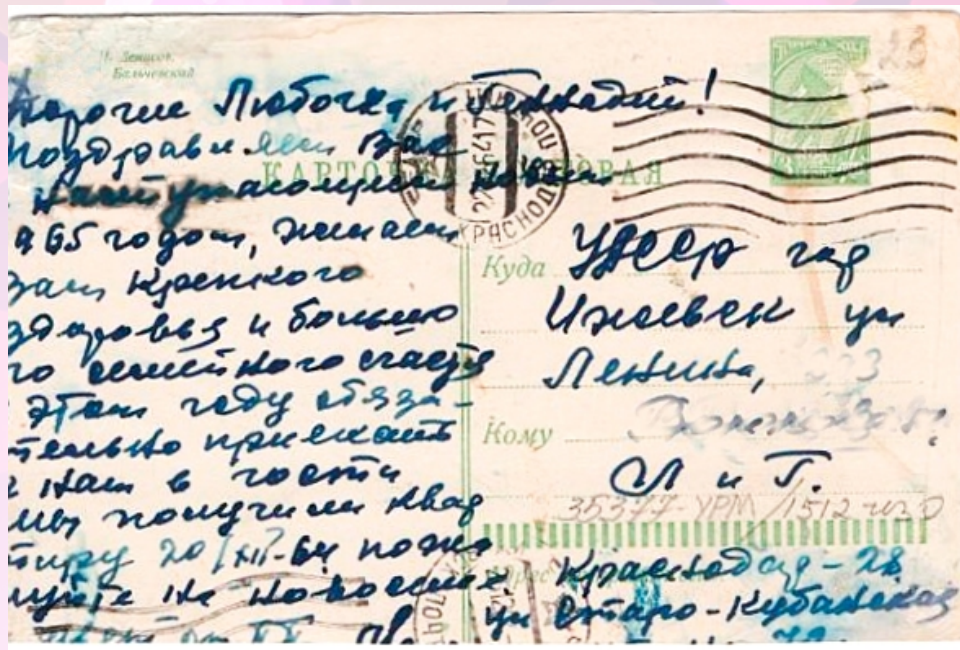 Н. Денисов.
Бальчевский
Дорогие Любочка и Геннадий!
Поздравляем Вас
Наступающим Новым
1965 годом, желаем
Вам Крепкого
здоровья и большо
го семейного счастья
этом году обяза-
тельно приехать
к нам в гости
Мы получили Квар
тиру 20/XII-64 пожа
луйте на новоселье
КАРТОЧКА ПОЧТОВАЯ
КРАСНОДАР
Куда УАССР гор
Ижевск ул
Ленина,
Кому
Л и Г.
35377-УРМ/1512 из 0
Краснодар-28
ул Старо-Кубанская